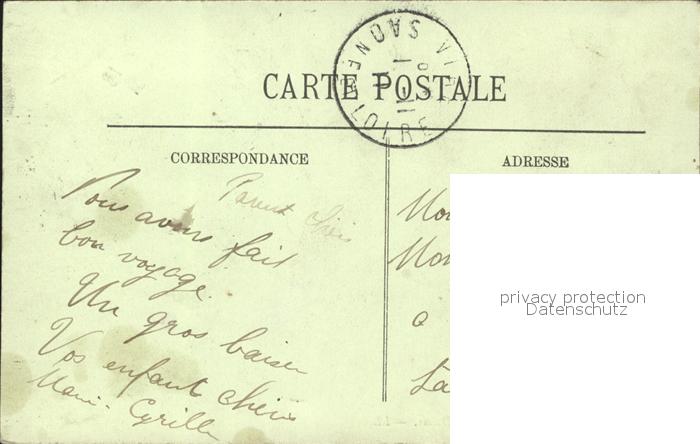 SAONE
LOIRE
CARTE POSTALE
CORRESPONDANCE
ADRESSE
Parents chéris
Nous avons fait
bon voyage.
Un gros baiser
Vos enfants chéris
Marie. Cyrille
Mon
Mon
a
La
privacy protection
Datenschutz